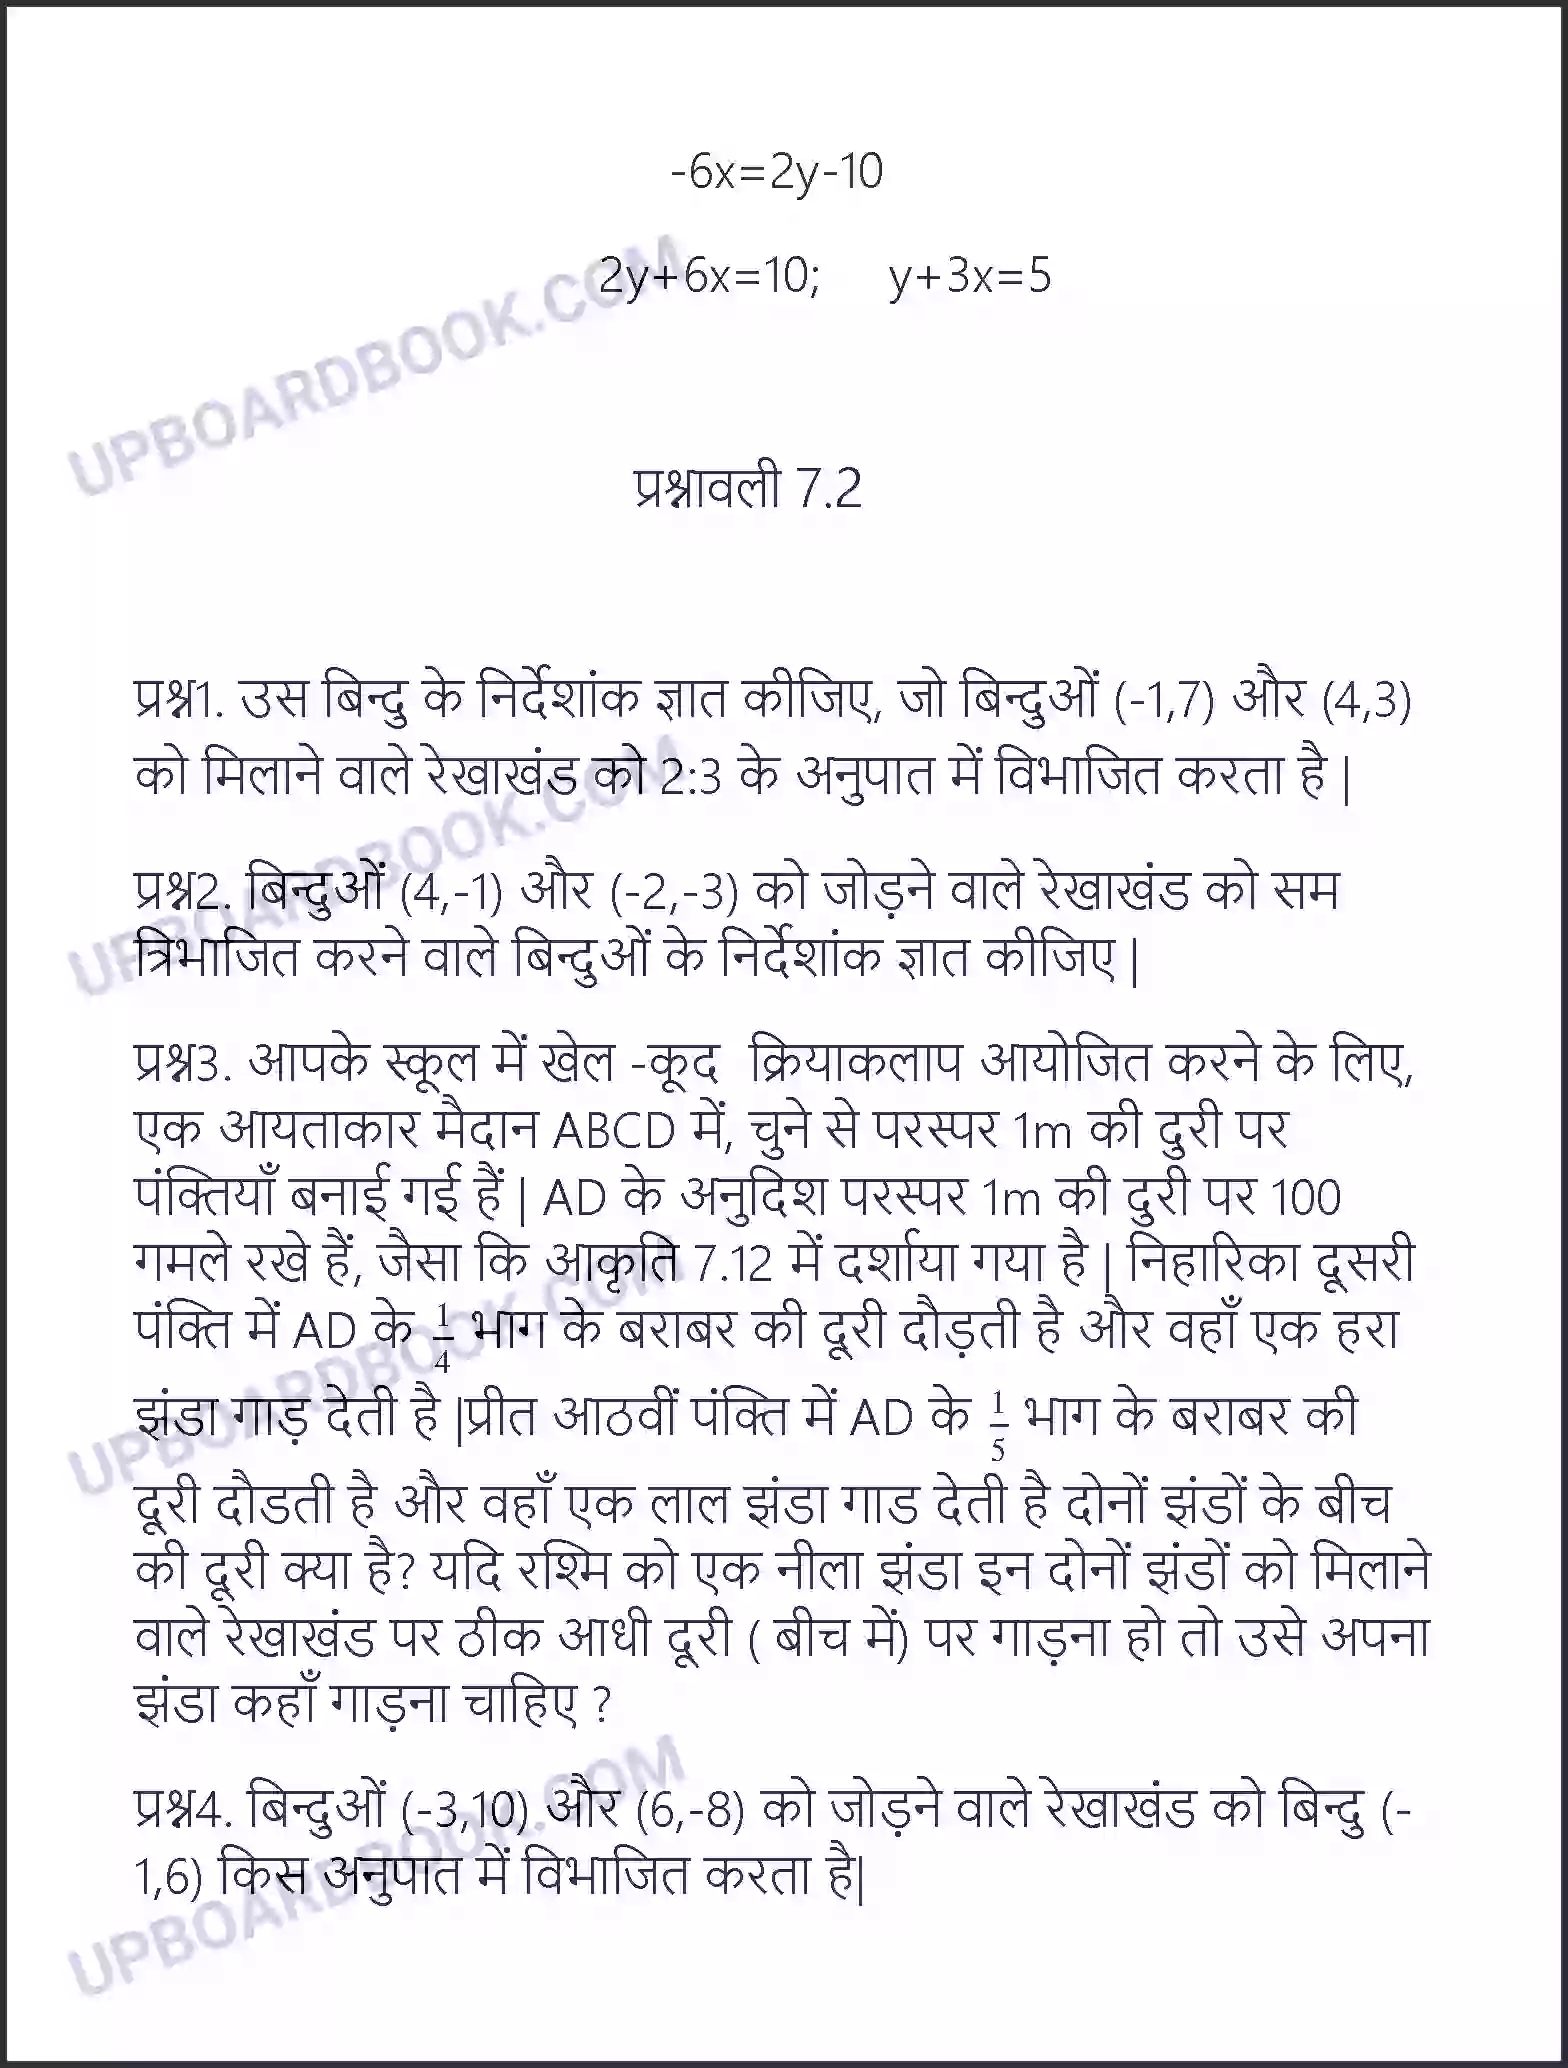 -6x=2y-10
2y+6x=10; y+3x=5
प्रश्नावली 7.2
प्रश्न1. उस बिन्दु के निर्देशांक ज्ञात कीजिए, जो बिन्दुओं (-1,7) और (4,3)
को मिलाने वाले रेखाखंड को 2:3 के अनुपात में विभाजित करता है |
प्रश्न2. बिन्दुओं (4,-1) और (-2,-3) को जोड़ने वाले रेखाखंड को सम
त्रिभाजित करने वाले बिन्दुओं के निर्देशांक ज्ञात कीजिए |
प्रश्न3. आपके स्कूल में खेल -कूद क्रियाकलाप आयोजित करने के लिए,
एक आयताकार मैदान ABCD में, चुने से परस्पर 1m की दुरी पर
पंक्तियाँ बनाई गई हैं | AD के अनुदिश परस्पर 1m की दुरी पर 100
गमले रखे हैं, जैसा कि आकृति 7.12 में दर्शाया गया है | निहारिका दूसरी
पंक्ति में AD के 1/4 भाग के बराबर की दूरी दौड़ती है और वहाँ एक हरा
झंडा गाड़ देती है |प्रीत आठवीं पंक्ति में AD के 1/5 भाग के बराबर की
दूरी दौडती है और वहाँ एक लाल झंडा गाड देती है दोनों झंडों के बीच
की दूरी क्या है? यदि रश्मि को एक नीला झंडा इन दोनों झंडों को मिलाने
वाले रेखाखंड पर ठीक आधी दूरी ( बीच में) पर गाड़ना हो तो उसे अपना
झंडा कहाँ गाड़ना चाहिए ?
प्रश्न4. बिन्दुओं (-3,10) और (6,-8) को जोड़ने वाले रेखाखंड को बिन्दु (-
1,6) किस अनुपात में विभाजित करता है|
UPBOARDBOOK.COM
UPBOARDBOOK.COM
UPBOARDBOOK.COM
UPBOARDBOOK.COM